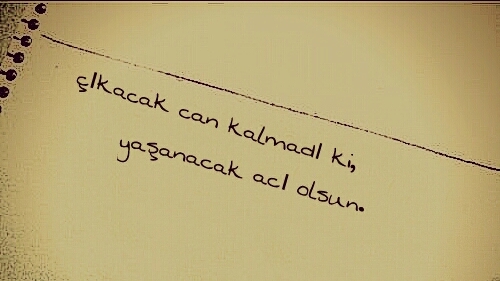 çıkacak can kalmadı ki,
yaşanacak acı olsun.